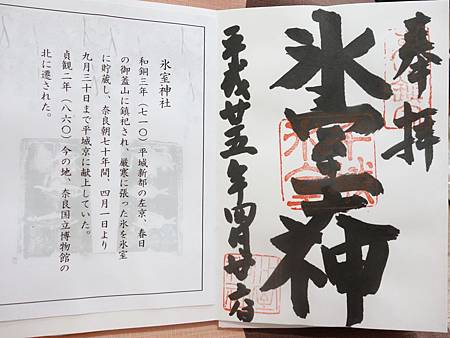 奉拝
氷室神
平成廿五年四月廿
氷室神社
和銅三年（七一〇）平城新都の左京、春日
の御蓋山に鎮祀され、厳寒に張った氷を氷室
に貯蔵し、奈良朝七十年間、四月一日より
九月三十日まで平城京に献上していた。
貞観二年（八六〇）今の地、奈良国立博物館の
北に遷された。